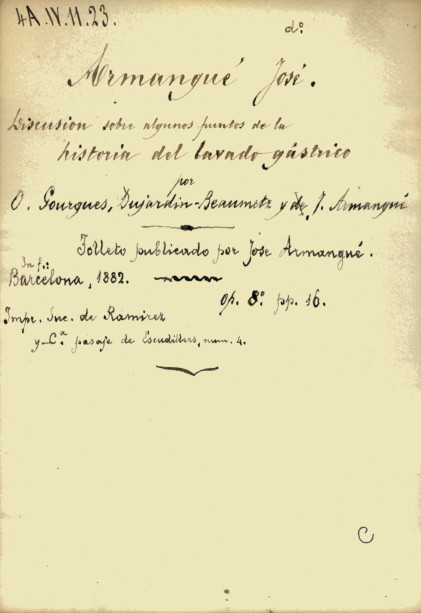 4A.IV.11.23.
do.
Armangué José.
Discusion sobre algunos puntos de la
historia del lavado gástrico
por
O. Gourgues, Dujardin-Beaumetz y de J. Armangué
Folleto publicado por José Armangué.
In f.:
Barcelona, 1882.
op. 8.º pp. 16.
Impr. Suc. de Ramirez
y C.ª pasaje de Escudillers, num. 4.
C